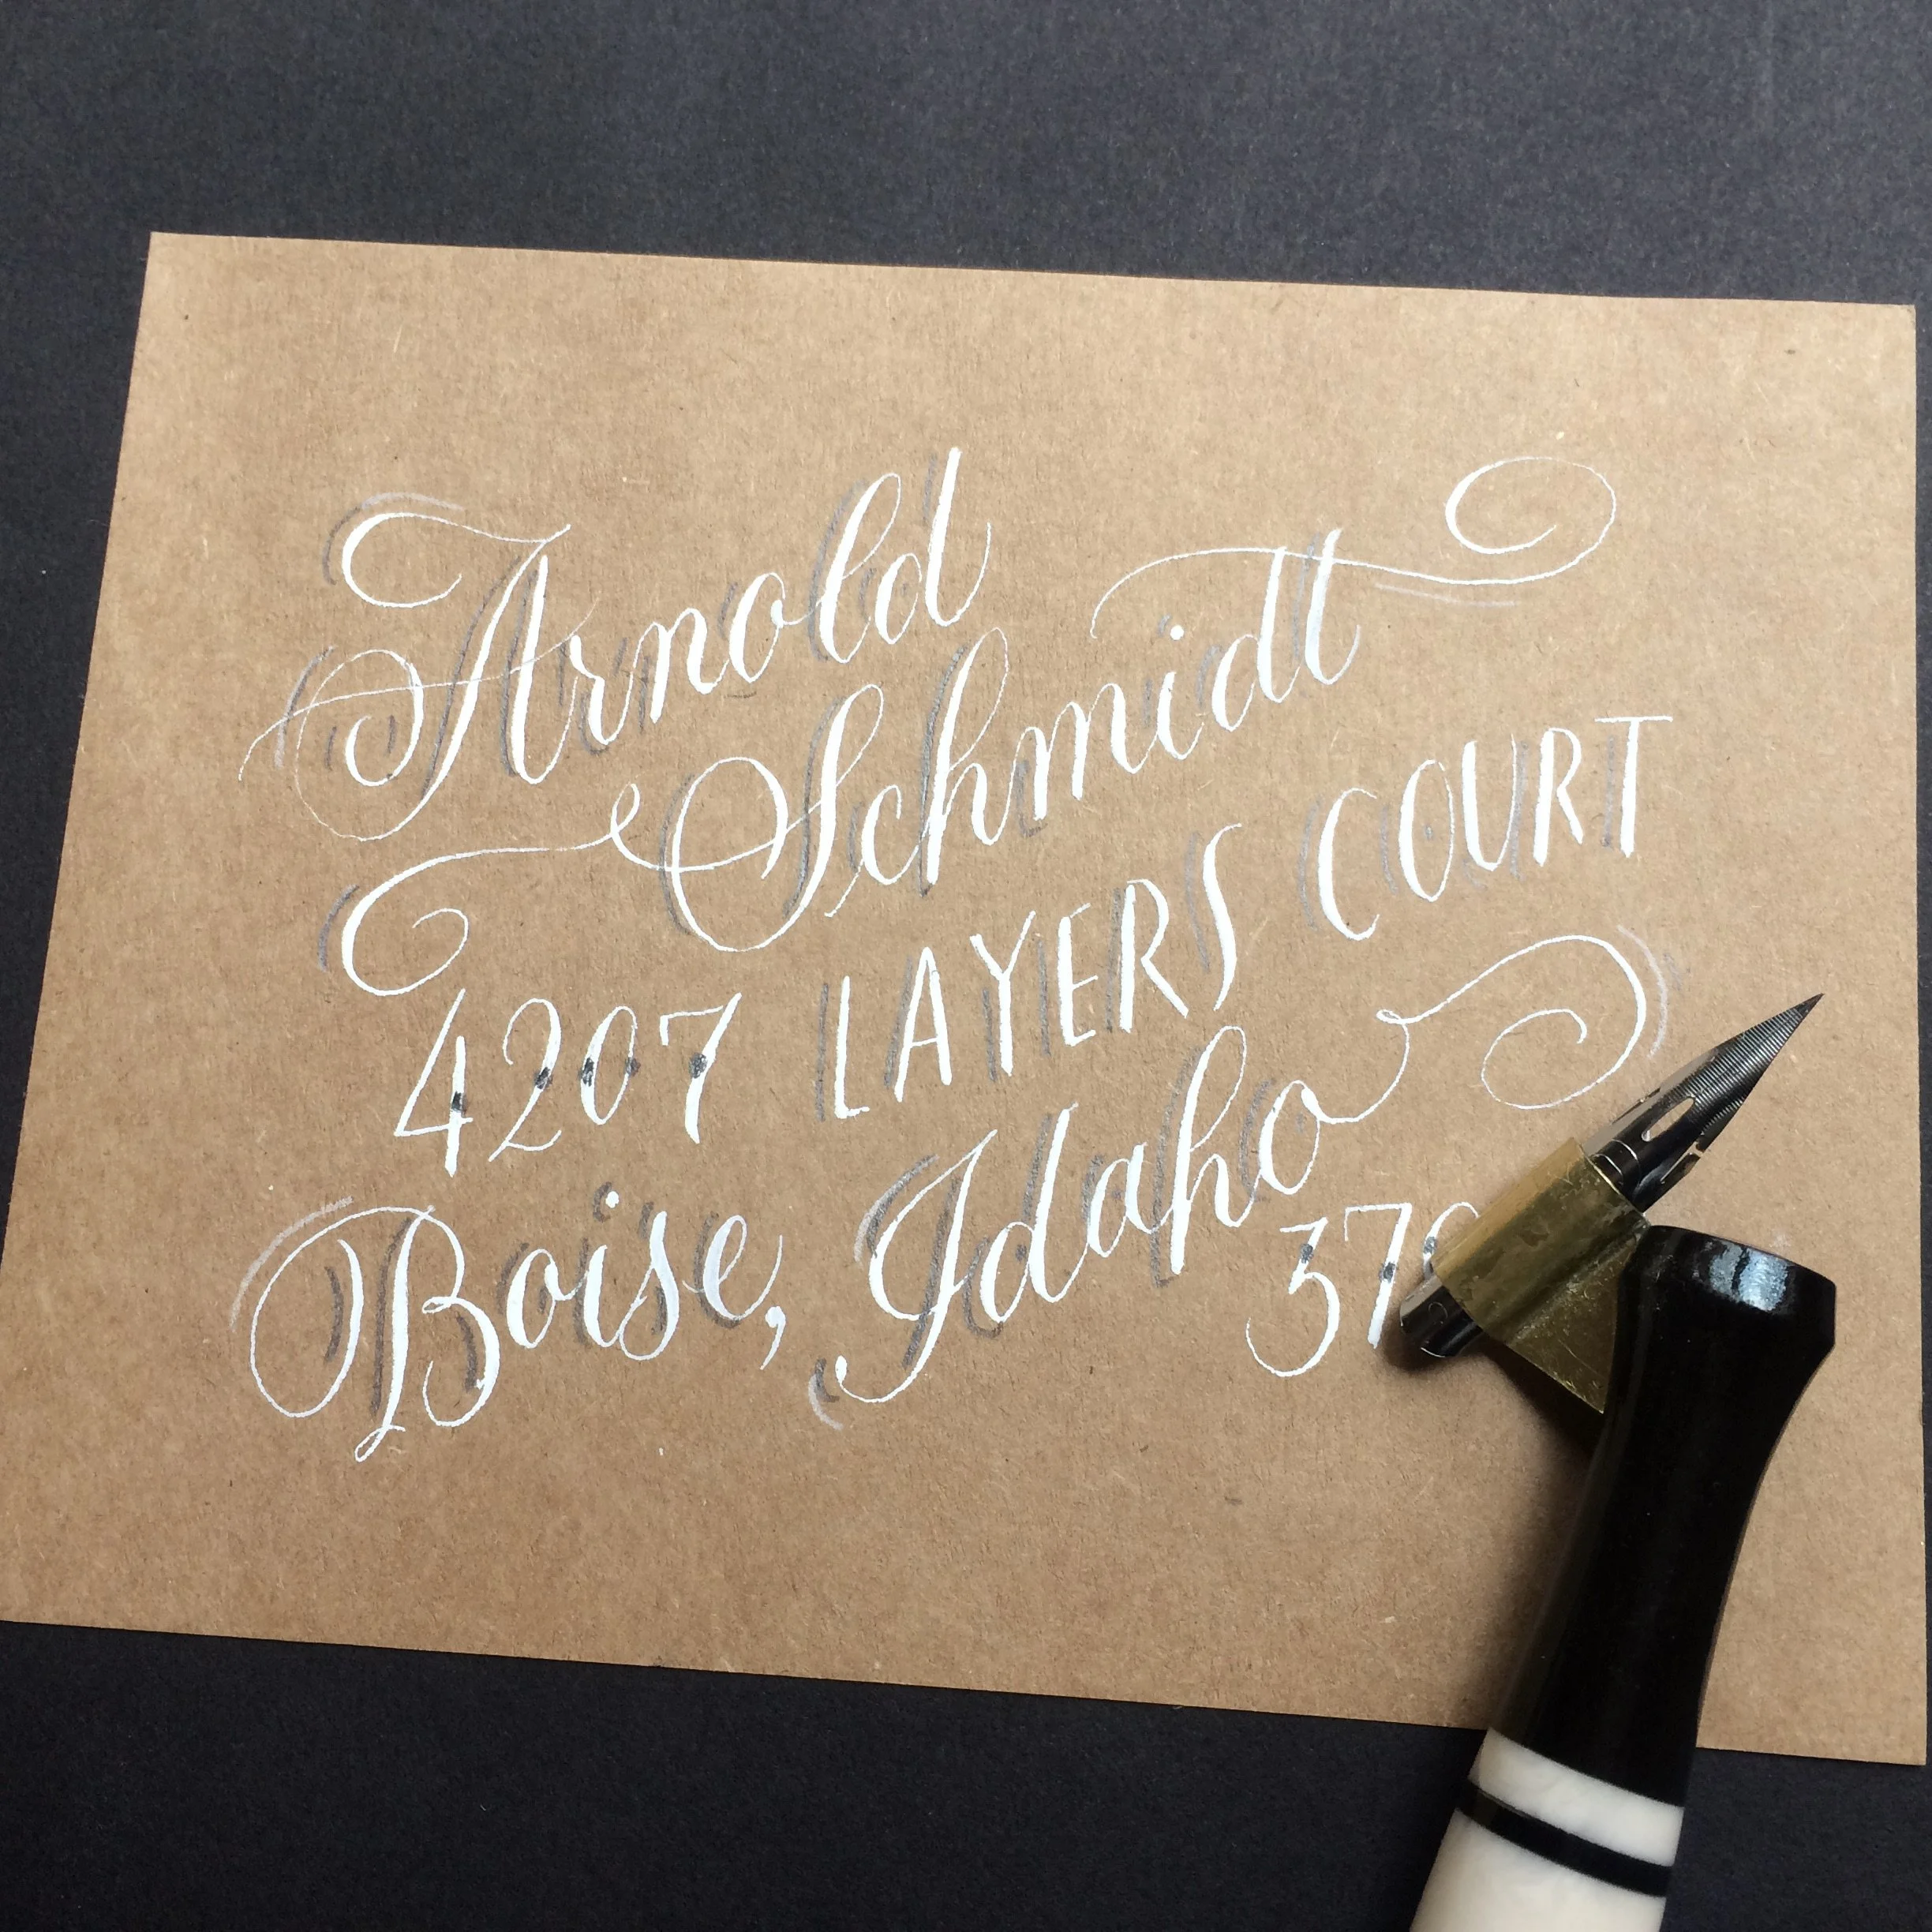 Arnold
Schmidt
4207 LAYERS COURT
Boise, Idaho